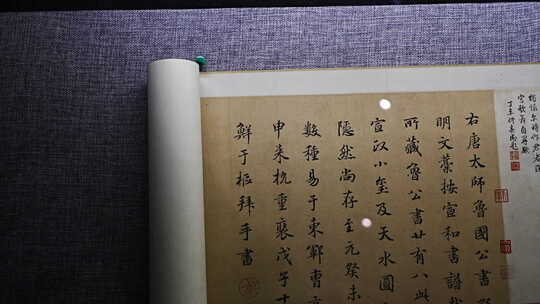 右唐太師魯國公書
明文藁按宣和書譜
所藏魯公書廿有八此
宣政小璽及天水圓
隱然尚存至元癸未
數種易于東鄆曹彥
申來杭重裝戊子十
鮮于樞拜手書